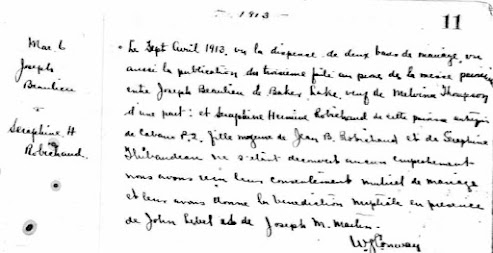 - 1913 -
11
Mar. 6
Joseph
Beaulieu
+
Seraphine H
Robichaud.
Le Sept Avril 1913, vu la dispense de deux bans de mariage, vu
aussi la publication du troisième faite au prone de la messe
entre Joseph Beaulieu de Baker Lake, veuf de Melvina Thompson
d'une part; et Seraphine Hermine Robichaud de cette paroisse
de Cabano P.Q. fille mageure de Jean B. Robichaud et de Seraphine
Thibaudeau ne s'etant decouvert aucun empechement
nous avons reçu leurs consentement mutuel de mariage
et leur avons donne la benediction nuptiale en presence
de John Lebel et de Joseph M. Martin.
W J Conway